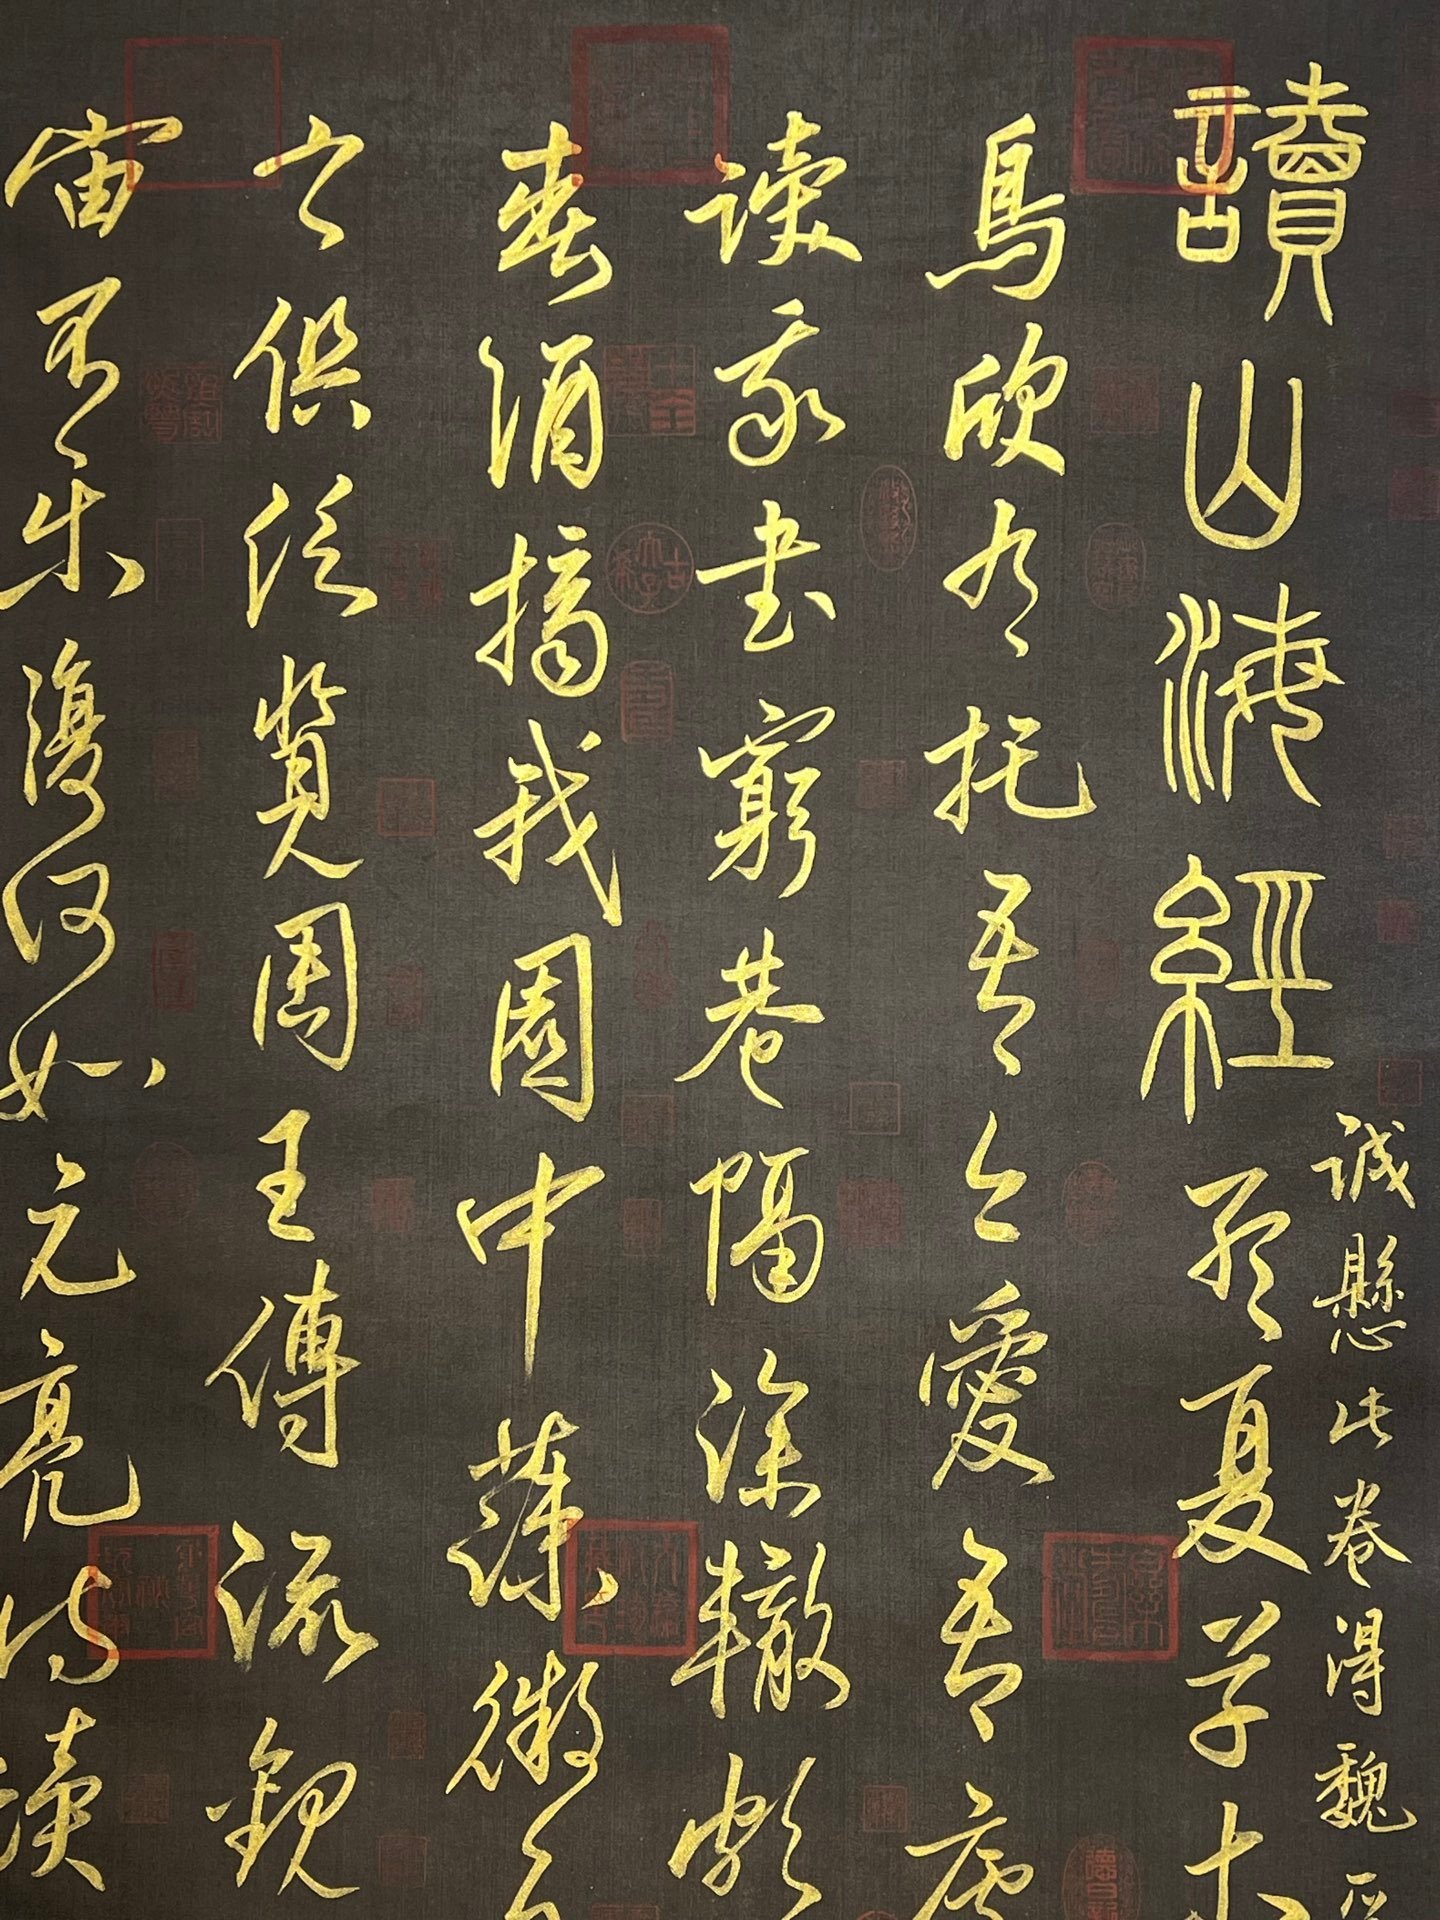 誠懸此卷得魏
讀山海經孟夏草木
鳥欣有托吾亦愛吾廬
讀我書窮巷隔深轍頗
春酒摘我園中蔬微
之俱泛覽周王傳流觀
宙不樂復何如元亮詩讀